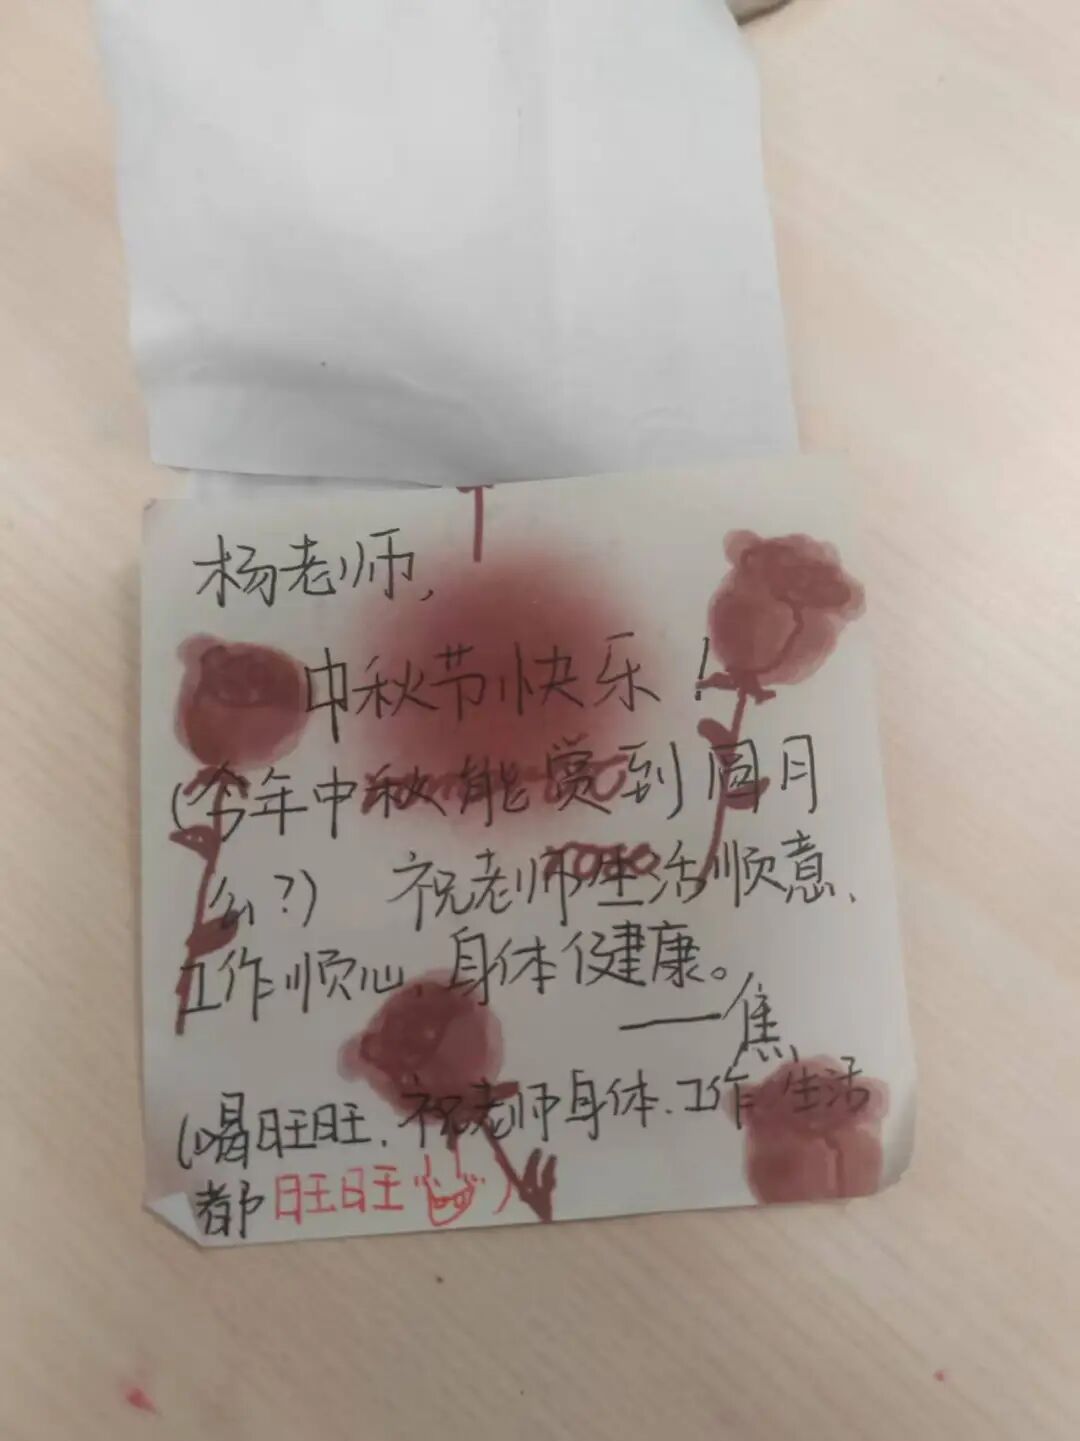 杨老师,
中秋节快乐!
(今年中秋能赏到圆月
么?) 祝老师生活顺意、
工作顺心,身体健康。
——焦
(喝旺旺,祝老师身体、工作、生活
都旺旺)